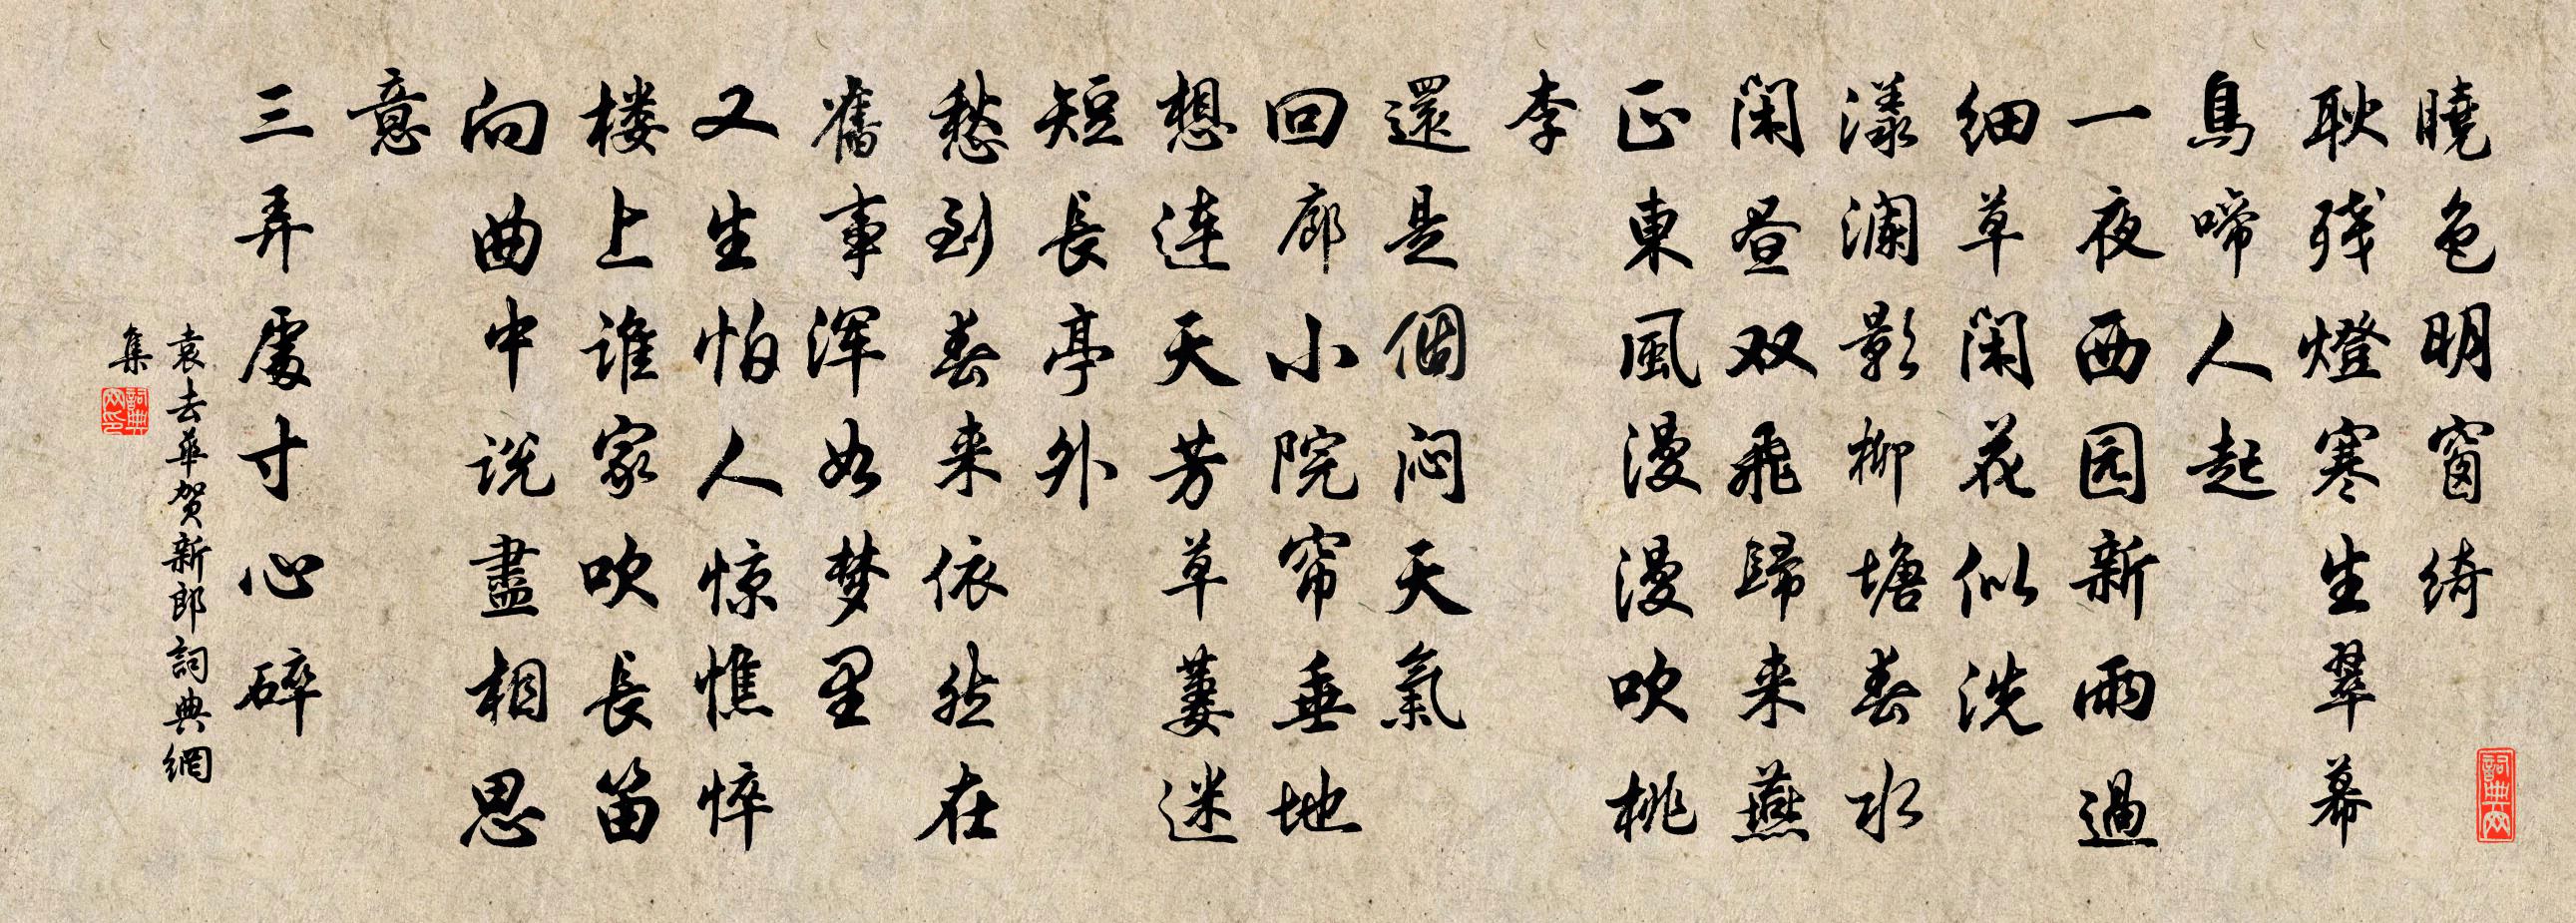 曉色明窗绮
耿残燈寒生翠幕
鳥啼人起
一夜西园新雨過
细草闲花似洗
漾澜影柳塘春水
闲昼双飛歸来燕
正東風漫漫吹桃
李
還是個闷天氣
回廊小院帘垂地
想连天芳草萋迷
短長亭外
愁到春来依然在
舊事浑如梦里
又生怕人惊憔悴
楼上谁家吹長笛
向曲中说盡相思
意
三弄處寸心碎
袁去華贺新郎詞典網
集
詞典网
詞典网印